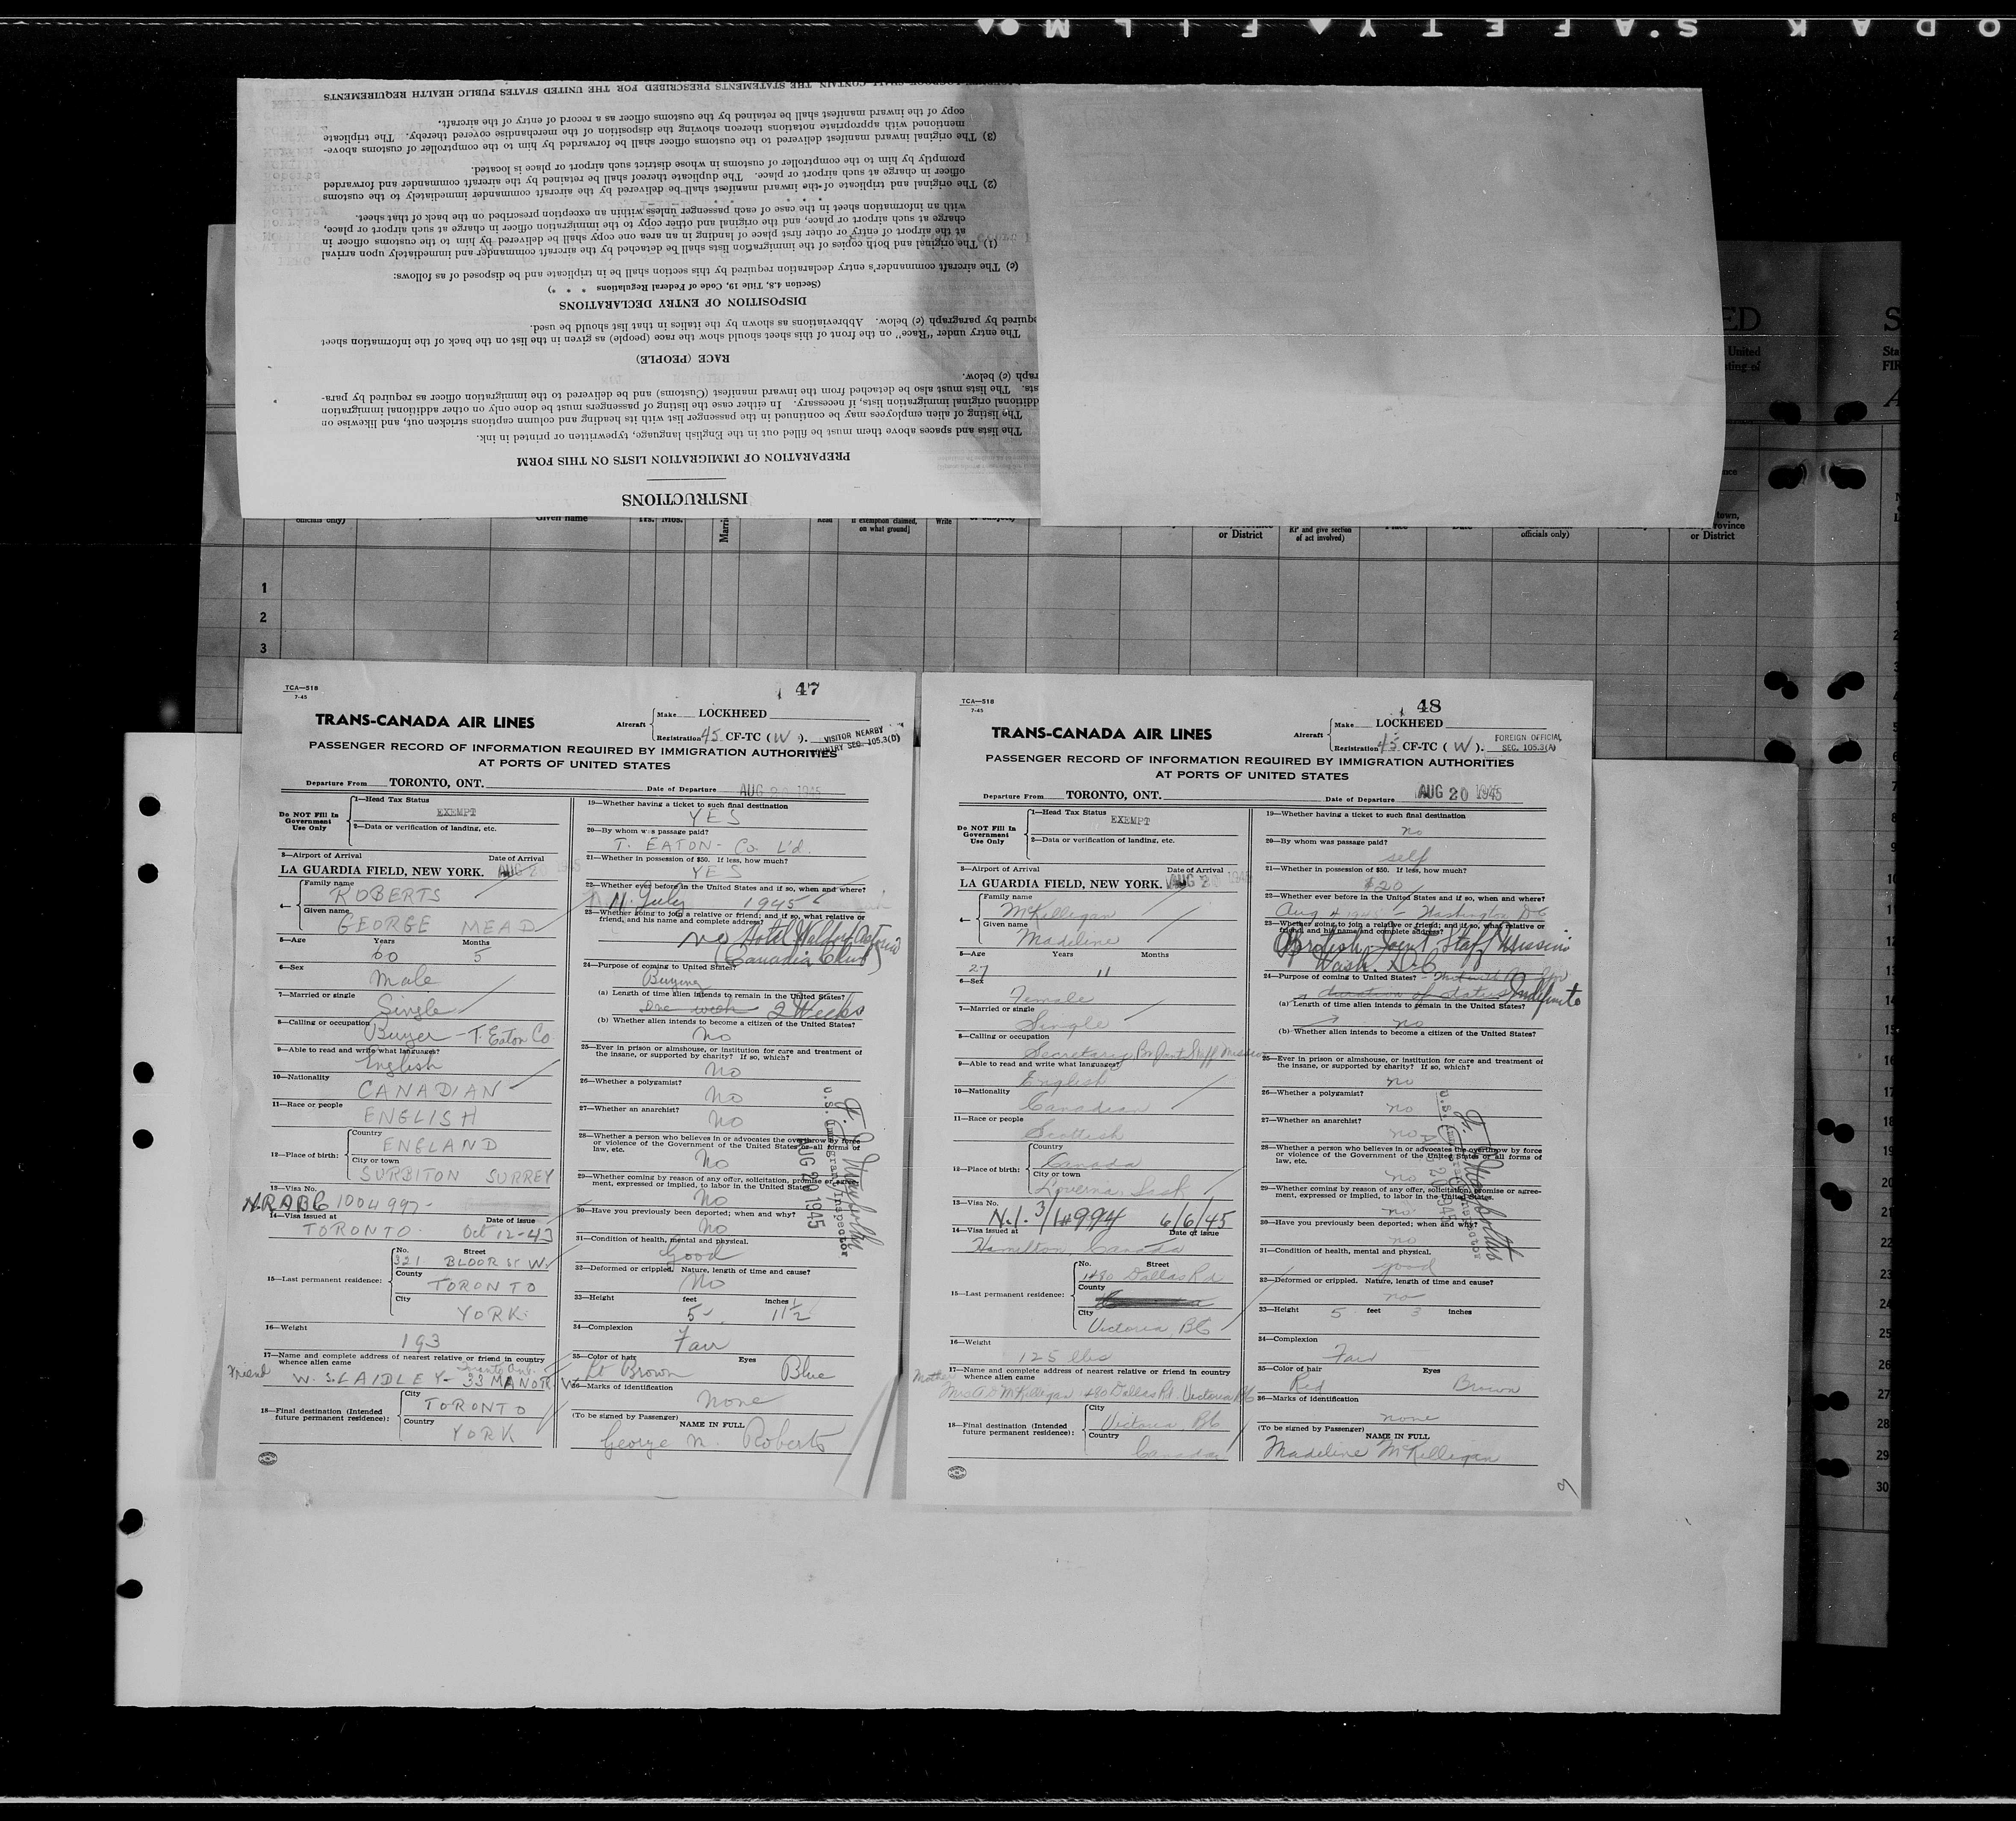 KODAK SAFETY FILM
INSTRUCTIONS
PREPARATION OF IMMIGRATION LISTS ON THIS FORM
The lists and spaces above them must be filled out in the English language, typewritten or printed in ink.
The listing of alien employees may be continued in the passenger list with its heading and column captions stricken out, and likewise on
additional original immigration lists, if necessary. In either case the listing of passengers must be done only on other additional immigration
The lists must also be detached from the inward manifest (Customs) and be delivered to the immigration officer as required by para-
graph (c) below.
RACE (PEOPLE)
The entry under "Race" on the front of this sheet should show the race (people) as given in the list on the back of the information sheet
required by paragraph (c) below. Abbreviations as shown by the italics in that list should be used.
DISPOSITION OF ENTRY DECLARATIONS
(Section 4.8, Title 19, Code of Federal Regulations * * *)
(c) The aircraft commander's entry declaration required by this section shall be in triplicate and be disposed of as follows:
(1) The original and both copies of the immigration lists shall be detached by the aircraft commander and immediately upon arrival
at the airport of entry or other first place of landing in an area one copy shall be delivered by him to the customs officer in
charge at such airport or place, and the original and other copy to the immigration officer in charge at such airport or place,
with an information sheet in the case of each passenger unless within an exception prescribed on the back of that sheet.
(2) The original and triplicate of the inward manifest shall be delivered by the aircraft commander immediately to the customs
officer in charge at such airport or place. The duplicate thereof shall be retained by the aircraft commander and forwarded
promptly by him to the comptroller of customs in whose district such airport or place is located.
(3) The original inward manifest delivered to the customs officer shall be forwarded by him to the comptroller of customs above-
mentioned with appropriate notations thereon showing the disposition of the merchandise covered thereby. The triplicate
copy of the inward manifest shall be retained by the customs officer as a record of entry of the aircraft.
SHALL CONTAIN THE STATEMENTS PRESCRIBED FOR THE UNITED STATES PUBLIC HEALTH REQUIREMENTS
officials only) Given name Yrs. Mos. Read if exemption claimed, on what ground] Write or District RP and give section of act involved) officials only) town, Province or District
1
2
3
TCA—518
7-45
47
TRANS-CANADA AIR LINES
Aircraft Make LOCKHEED
Registration 45 CF-TC ( W ).
VISITOR NEARBY
COUNTRY SEC. 105.3(D)
PASSENGER RECORD OF INFORMATION REQUIRED BY IMMIGRATION AUTHORITIES
AT PORTS OF UNITED STATES
Departure From TORONTO, ONT. Date of Departure AUG 20 1945
Do NOT Fill In Government Use Only
1—Head Tax Status
EXEMPT
2—Data or verification of landing, etc.
3—Airport of Arrival Date of Arrival
LA GUARDIA FIELD, NEW YORK. AUG 20 1945
4— Family name
ROBERTS
Given name
GEORGE MEAD
5—Age Years Months
60 5
6—Sex
Male
7—Married or single
Single
8—Calling or occupation
Buyer - T. Eaton Co
9—Able to read and write what languages?
English
10—Nationality
CANADIAN
11—Race or people
ENGLISH
12—Place of birth: Country
ENGLAND
City or town
SURBITON SURREY
13—Visa No.
NRABC 1004997-
14—Visa issued at Date of issue
TORONTO Oct 12-43
15—Last permanent residence: No. Street
321 BLOOR ST W.
County
TORONTO
City
YORK.
16—Weight
193
17—Name and complete address of nearest relative or friend in country
whence alien came
Friend W. S. LAIDLEY - 33 MANOR
18—Final destination (Intended future permanent residence): City
TORONTO
Country
YORK
19—Whether having a ticket to such final destination
YES
20—By whom was passage paid?
T. EATON - Co. L'd.
21—Whether in possession of $50. If less, how much?
YES
22—Whether ever before in the United States and if so, when and where?
July 1945
23—Whether going to join a relative or friend; and if so, what relative or
friend, and his name and complete address?
no Hotel Waldorf Astoria
(Canadian Club)
24—Purpose of coming to United States?
Buying
(a) Length of time alien intends to remain in the United States?
One week 2 Weeks
(b) Whether alien intends to become a citizen of the United States?
No
25—Ever in prison or almshouse, or institution for care and treatment of
the insane, or supported by charity? If so, which?
No
26—Whether a polygamist?
No
27—Whether an anarchist?
No
28—Whether a person who believes in or advocates the overthrow by force
or violence of the Government of the United States or all forms of
law, etc.
No
29—Whether coming by reason of any offer, solicitation, promise or agree-
ment, expressed or implied, to labor in the United States.
No
30—Have you previously been deported; when and why?
No
31—Condition of health, mental and physical.
Good
32—Deformed or crippled. Nature, length of time and cause?
No
33—Height feet inches
5 11½
34—Complexion
Fair
35—Color of hair Eyes
Lt Brown Blue
36—Marks of identification
None
(To be signed by Passenger)
NAME IN FULL
George M Roberts
U.S. Immigrant Inspector
AUG 20 1945
TCA—518
7-45
48
TRANS-CANADA AIR LINES
Aircraft Make LOCKHEED
Registration 45 CF-TC ( W ).
FOREIGN OFFICIAL
SEC. 105.3(A)
PASSENGER RECORD OF INFORMATION REQUIRED BY IMMIGRATION AUTHORITIES
AT PORTS OF UNITED STATES
Departure From TORONTO, ONT. Date of Departure AUG 20 1945
Do NOT Fill In Government Use Only
1—Head Tax Status
EXEMPT
2—Data or verification of landing, etc.
3—Airport of Arrival Date of Arrival
LA GUARDIA FIELD, NEW YORK. AUG 20 1945
4— Family name
McKilligan
Given name
Madeline
5—Age Years Months
27 11
6—Sex
Female
7—Married or single
Single
8—Calling or occupation
Secretary, Br Joint Staff Mission
9—Able to read and write what languages?
English
10—Nationality
Canadian
11—Race or people
Scottish
12—Place of birth: Country
Canada
City or town
Loverna, Sask
13—Visa No.
N.I. 3/1 #994 6/6/45
14—Visa issued at Date of issue
Hamilton, Canada
15—Last permanent residence: No. Street
1480 Dallas Rd
County
City
Victoria, BC
16—Weight
125 lbs
17—Name and complete address of nearest relative or friend in country
whence alien came
Mother Mrs A D McKilligan 1480 Dallas Rd. Victoria BC
18—Final destination (Intended future permanent residence): City
Victoria, BC
Country
Canada
19—Whether having a ticket to such final destination
no
20—By whom was passage paid?
self
21—Whether in possession of $50. If less, how much?
$20
22—Whether ever before in the United States and if so, when and where?
Aug 4 1945 - Washington DC
23—Whether going to join a relative or friend; and if so, what relative or
friend, and his name and complete address?
British Joint Staff Mission
Wash. D.C
24—Purpose of coming to United States?
duration of status Indefinite
(a) Length of time alien intends to remain in the United States?
no
(b) Whether alien intends to become a citizen of the United States?
25—Ever in prison or almshouse, or institution for care and treatment of
the insane, or supported by charity? If so, which?
no
26—Whether a polygamist?
no
27—Whether an anarchist?
no
28—Whether a person who believes in or advocates the overthrow by force
or violence of the Government of the United States or all forms of
law, etc.
no
29—Whether coming by reason of any offer, solicitation, promise or agree-
ment, expressed or implied, to labor in the United States.
no
30—Have you previously been deported; when and why?
no
31—Condition of health, mental and physical.
good
32—Deformed or crippled. Nature, length of time and cause?
no
33—Height 5 feet 3 inches
34—Complexion
Fair
35—Color of hair Eyes
Red Brown
36—Marks of identification
none
(To be signed by Passenger)
NAME IN FULL
Madeline McKilligan
U.S. Immigrant Inspector
AUG 20 1945